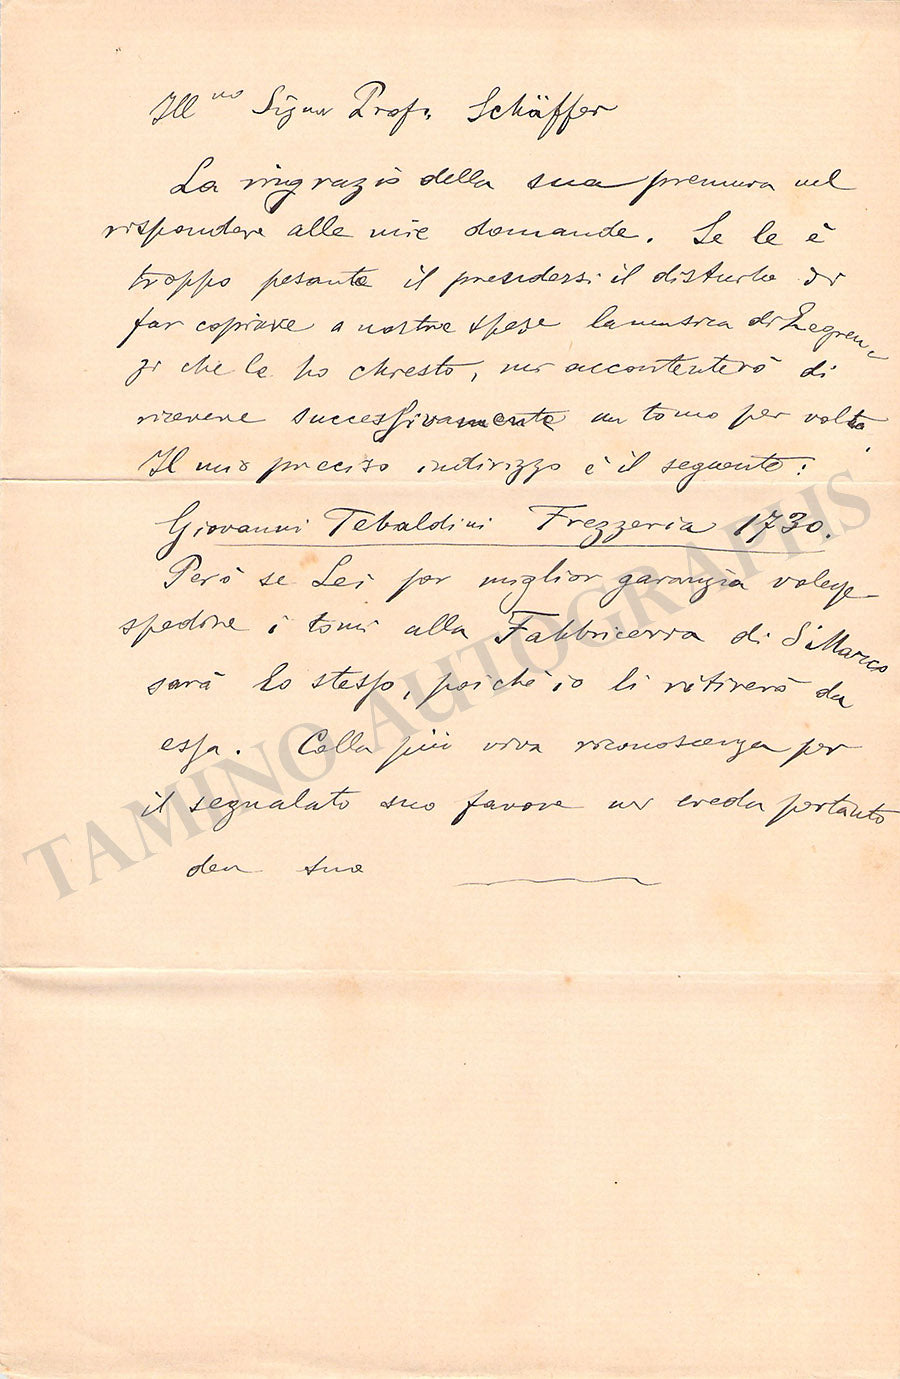 Ill.mo Signor Prof. Schäffer
La ringrazio della sua premura nel
rispondere alle mie domande. Se le è
troppo pesante il prendersi il disturbo di
far copiare a nostre spese la musica di Legren-
zi che le ho chiesto, mi accontenterò di
ricevere successivamente un tomo per volta.
Il mio preciso indirizzo è il seguente:
Giovanni Tebaldini Frezzeria 1730.
Però se Lei per miglior garanzia volesse
spedire i tomi alla Fabbriceria di S. Marco
sarà lo stesso, poichè io li ritirerò da
essa. Colla più viva riconoscenza per
il segnalato suo favore mi creda pertanto
suo
TAMINO AUTOGRAPHS